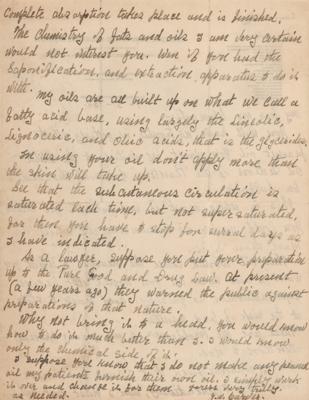 Complete absorption takes place and is finished.
The chemistry of fats and oils I am very certain
would not interest you. Even if you had the
saponification, and extraction apparatus to do it
with. My oils are all built up on what we call a
fatty acid base, using largely the Linoleic,
Lignoceric, and Oleic acids, that is the glycerides.
In using your oil don't apply more than
the skin will take up.
See that the subcutaneous circulation is
saturated each time, but not supersaturated,
for then you have to stop for several days as
I have indicated.
As a lawyer, suppose you put your preparation
up to the Pure Food and Drug Law. At present
(a few years ago) they warned the public against
preparations of that nature.
Why not bring it to a head. You would know
how to do it much better than I. I would know
only the chemical side of it.
I suppose you know that I do not make any peanut
oil my patients furnish their own oil. I simply work
it over and change it for them
as needed.
Yours very truly,